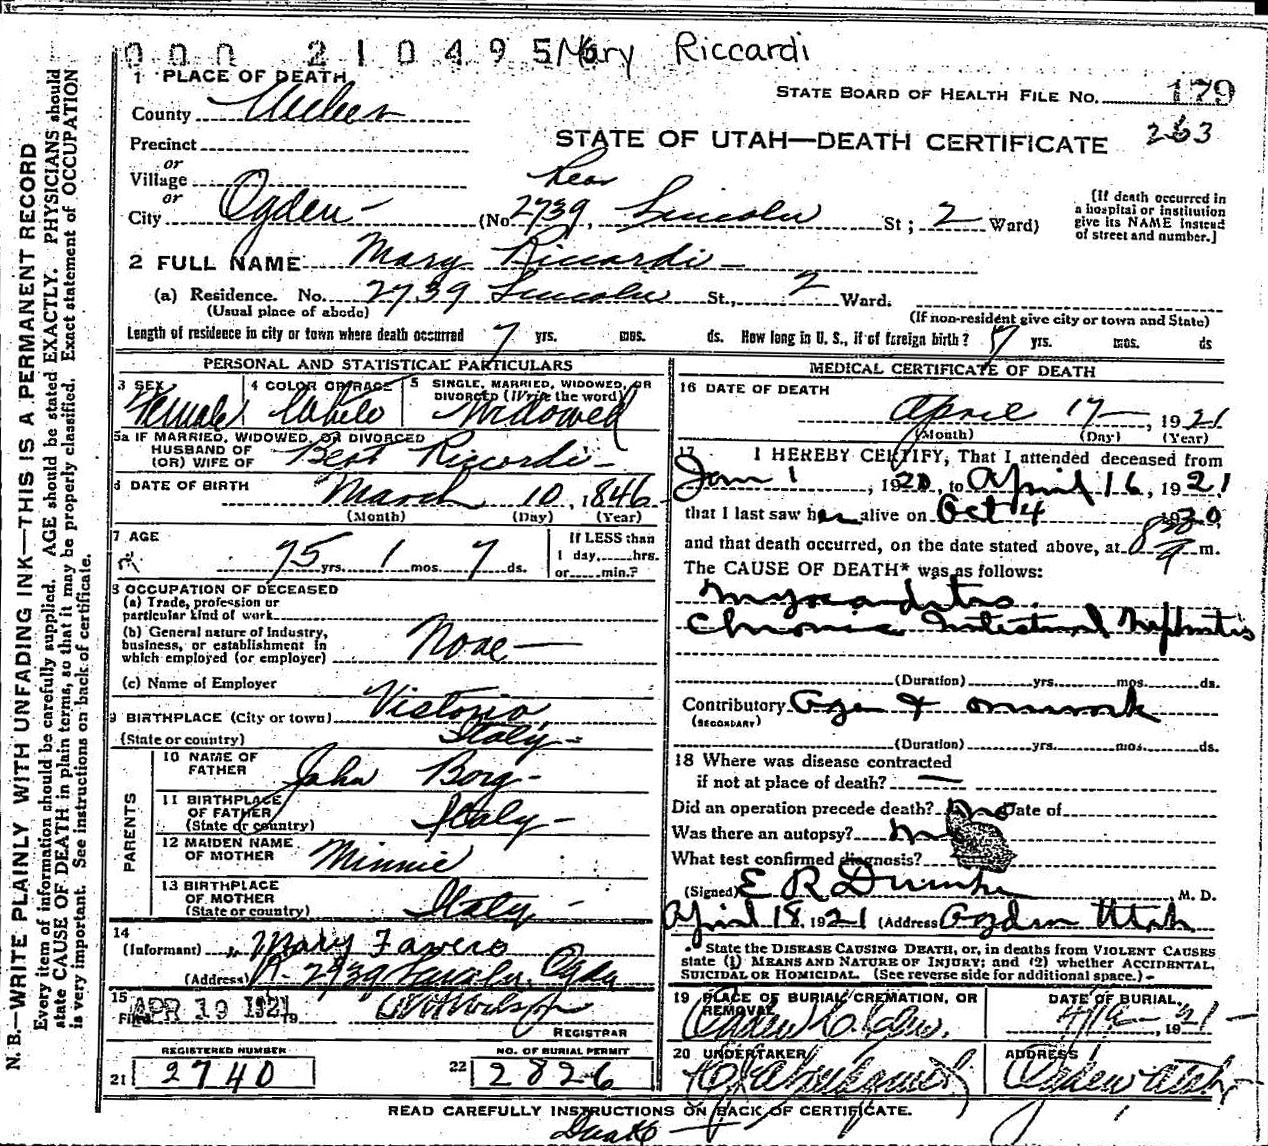 000 210495 Mary Riccardi
1 PLACE OF DEATH
STATE BOARD OF HEALTH FILE NO. 179
County Weber
263
STATE OF UTAH—DEATH CERTIFICATE
Precinct
or
Village
or
City Ogden (No. Rear 2739, Lincoln St; 2 Ward)
[If death occurred in
a hospital or institution
give its NAME instead
of street and number.]
2 FULL NAME Mary Riccardi
(a) Residence. No. 2739 Lincoln St., 2 Ward.
(Usual place of abode)
(If non-resident give city or town and State)
Length of residence in city or town where death occurred 7 yrs. mos. ds. How long in U. S., if of foreign birth? 7 yrs. mos. ds
PERSONAL AND STATISTICAL PARTICULARS
3 SEX Female
4 COLOR OR RACE White
5 SINGLE, MARRIED, WIDOWED, OR
DIVORCED (Write the word)
Widowed
5a IF MARRIED, WIDOWED, OR DIVORCED
HUSBAND OF
(OR) WIFE OF Bert Riccordi
6 DATE OF BIRTH March 10, 1846
(Month) (Day) (Year)
7 AGE
75 yrs. 1 mos. 7 ds.
If LESS than
1 day, hrs.
or min.?
8 OCCUPATION OF DECEASED
(a) Trade, profession or
particular kind of work
(b) General nature of industry,
business, or establishment in
which employed (or employer) None
(c) Name of Employer
9 BIRTHPLACE (City or town) Victorio
(State or country) Italy
PARENTS
10 NAME OF
FATHER John Borg
11 BIRTHPLACE
OF FATHER
(State or country) Italy
12 MAIDEN NAME
OF MOTHER Minnie
13 BIRTHPLACE
OF MOTHER
(State or country) Italy
14
(Informant) Mary Favero
(Address) R. 2939 Ogden
15
Filed APR 19 1921 19
REGISTRAR
REGISTERED NUMBER
21 2740
NO. OF BURIAL PERMIT
22 2826
MEDICAL CERTIFICATE OF DEATH
16 DATE OF DEATH
April 17, 1921
(Month) (Day) (Year)
17 I HEREBY CERTIFY, That I attended deceased from
Jan 1, 1920, to April 16, 1921
that I last saw her alive on Oct 4 1920
and that death occurred, on the date stated above, at m.
The CAUSE OF DEATH* was as follows:
Myocarditis
Chronic Intestinal Nephritis
(Duration) yrs. mos. ds.
Contributory Age &
(SECONDARY)
(Duration) yrs. mos. ds.
18 Where was disease contracted
if not at place of death?
Did an operation precede death? no Date of
Was there an autopsy? no
What test confirmed diagnosis?
(Signed) E R Dumke M. D.
April 18, 1921 (Address Ogden Utah
State the DISEASE CAUSING DEATH, or, in deaths from VIOLENT CAUSES
state (1) MEANS AND NATURE OF INJURY; and (2) whether ACCIDENTAL,
SUICIDAL OR HOMICIDAL. (See reverse side for additional space.)
19 PLACE OF BURIAL, CREMATION, OR
REMOVAL
Ogden
DATE OF BURIAL.
, 19 21
20 UNDERTAKER
ADDRESS
Ogden Utah
READ CAREFULLY INSTRUCTIONS ON BACK OF CERTIFICATE.
N. B.—WRITE PLAINLY WITH UNFADING INK—THIS IS A PERMANENT RECORD
Every item of information should be carefully supplied. AGE should be stated EXACTLY. PHYSICIANS should
state CAUSE OF DEATH in plain terms, so that it may be properly classified. Exact statement of OCCUPATION
is very important. See instructions on back of certificate.